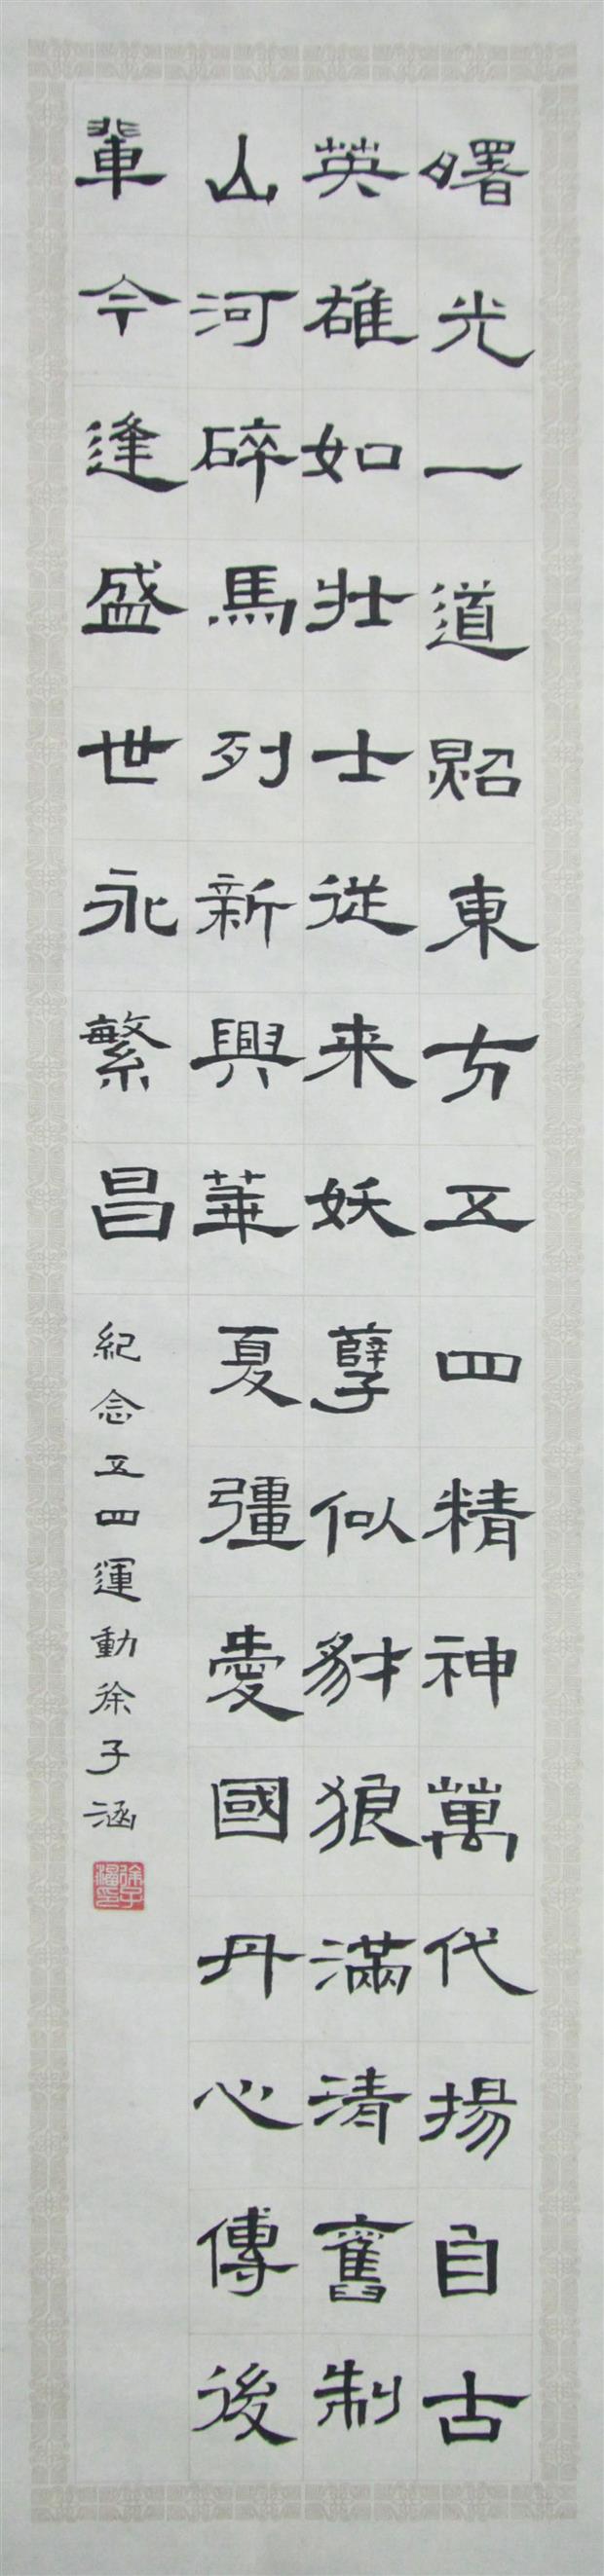 曙光一道照東方五四精神萬代揚自古
英雄如壯士從来妖孽似豺狼滿清舊制
山河碎馬列新興華夏彊愛國丹心傳後
輩今逢盛世永繁昌
紀念五四運動徐子涵
徐子涵印